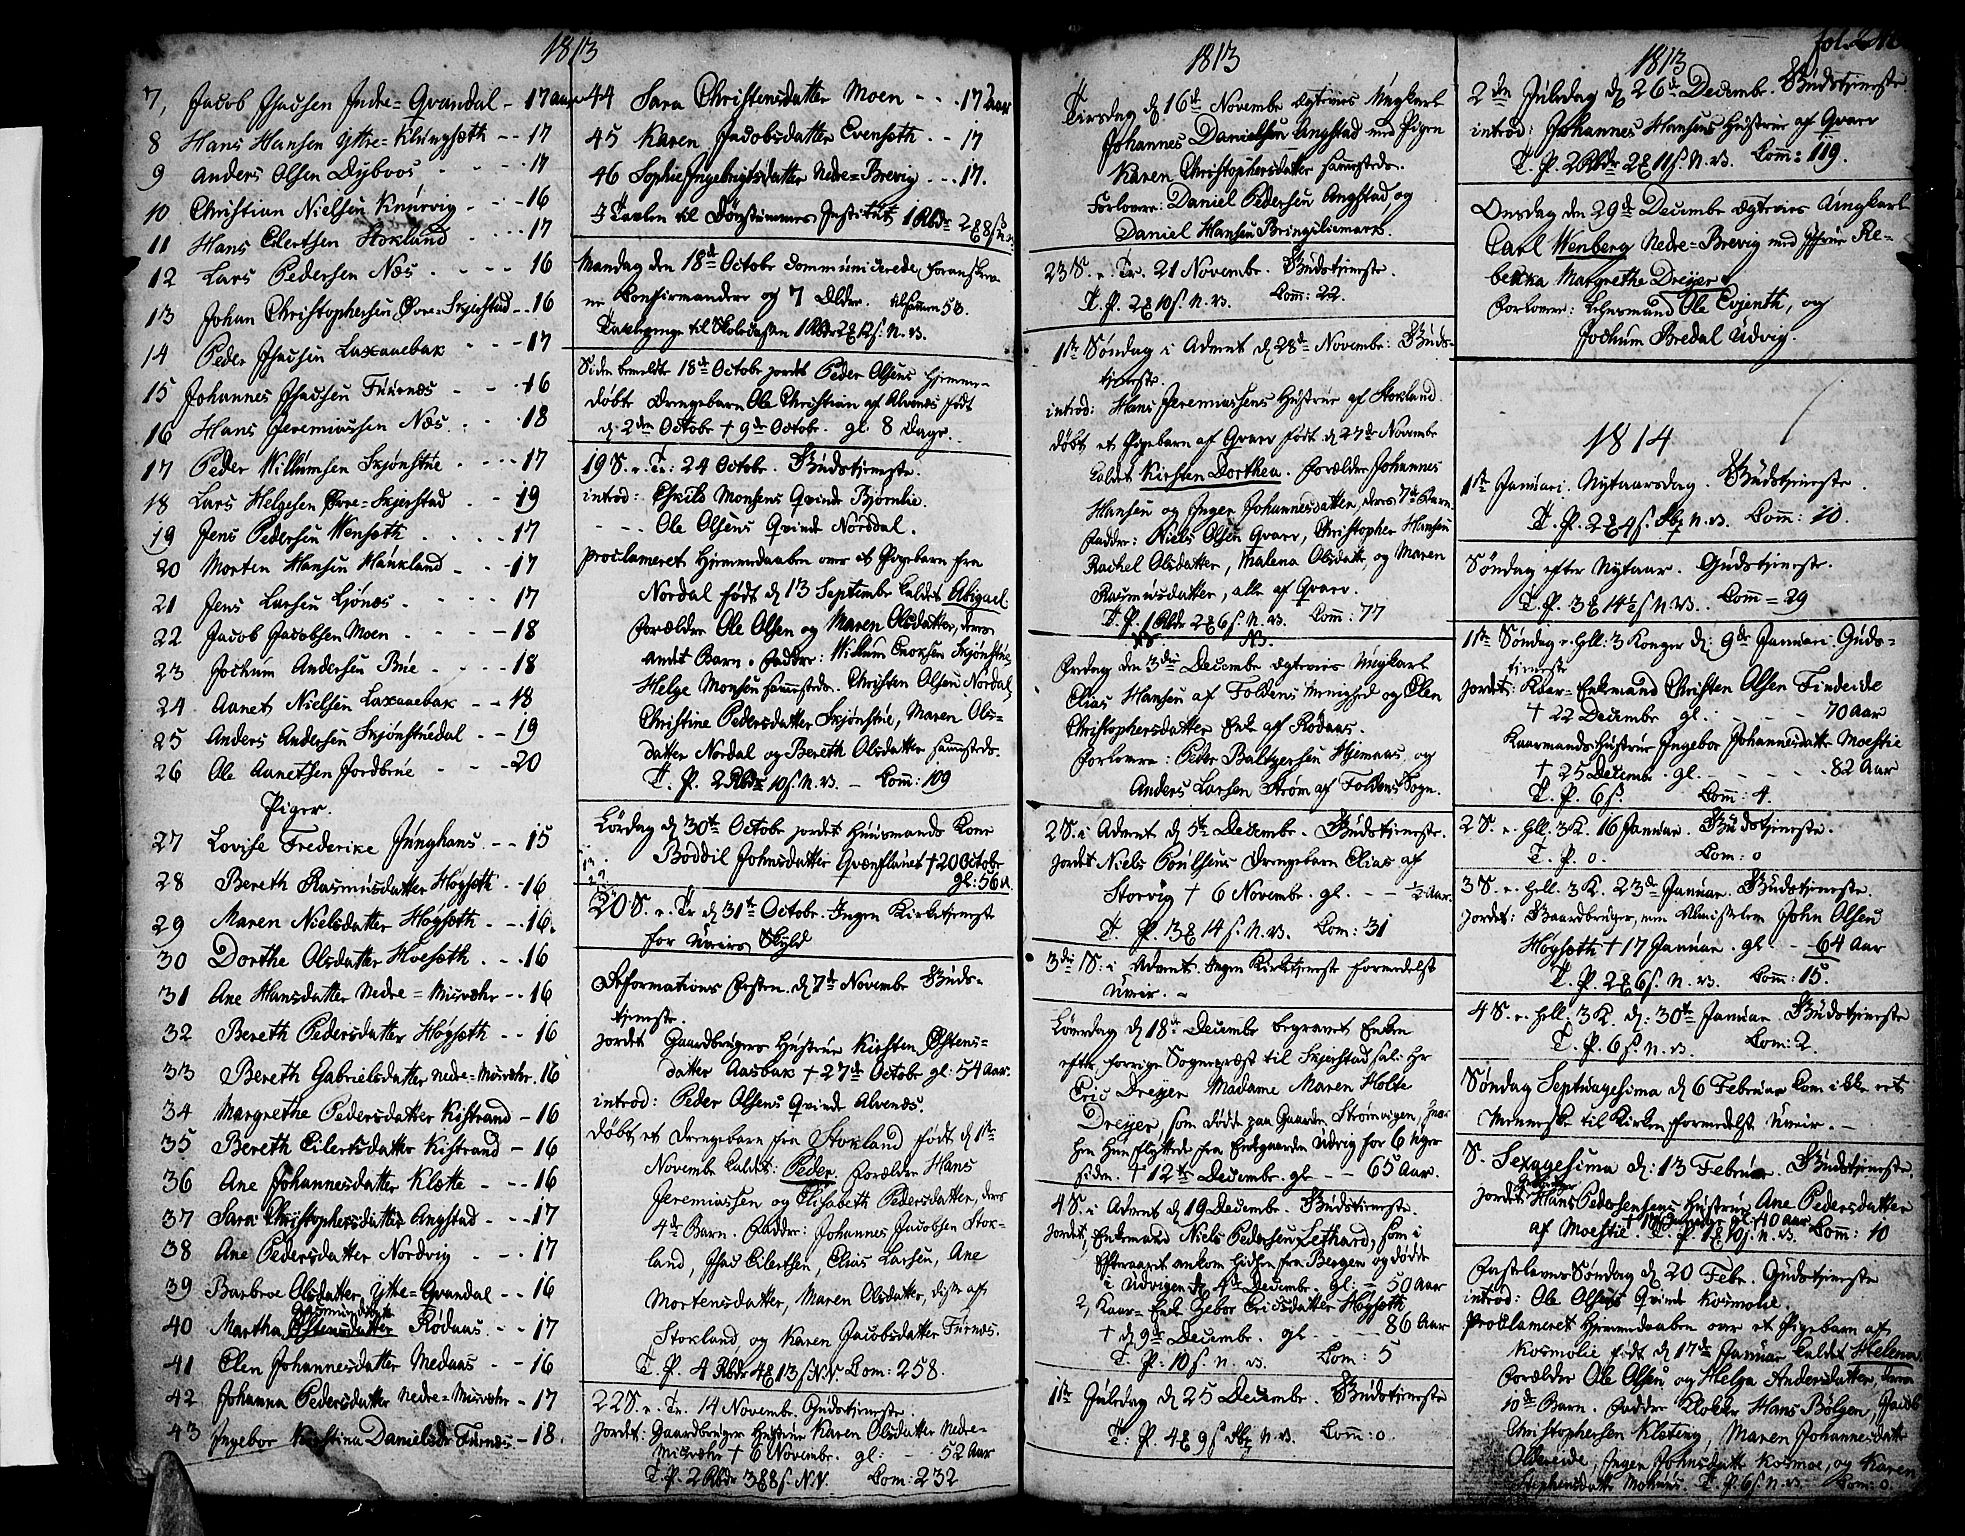 1813
7, Jacob Isacsen Indre=Qvandal - 17 aar
8 Hans Hansen Yttre=Klungsæth - - 17
9 Anders Olsen Dybvos - - - 17
10 Christian Nielsen Knurvig - - - 16
11 Hans Eilertsen Stokland - - - 17
12 Lars Pedersen Næs - - - 16
13 Johan Christophersen Øvre=Skjerstad - - 16
14 Peder Isacsen Laxaaebak - - - 17
15 Johannes Isacsen Furnæs - - - 16
16 Hans Jeremiassen Næs - - - 18
17 Peder Willumsen Skjønstue - - - 17
18 Lars Helgesen Øvre=Skjerstad - 19
19 Jens Pedersen Wensæth - - - 17
20 Morten Hansen Haukland - - - 17
21 Jens Larsen Ljønes - - - 17
22 Jacob Jacobsen Moen - - - 18
23 Jochum Andersen Bue - - - 18
24 Aanet Nielsen Laxaaebak - - 18
25 Anders Andersen Skjønstuedal - - 19
26 Ole Aanetsen Jordbrue - - - 20
Piger.
27 Lovise Frederike Junghans - - 15
28 Bereth Rasmusdatter Høgsæth - 16
29 Maren Nielsdatter Høgsæth - - 16.
30 Dorthe Olsdatter Hoesæth - - - 16
31 Ane Hansdatter Nedre=Misvæhr - - 16
32 Bereth Pedersdatter Høgsæth - - 16
33 Bereth Gabrielsdatter Nedre=Misvæhr - 16
34 Margrethe Pedersdatter Kistrand - 16
35 Bereth Eilertsdatter Kistrand - 16
36 Ane Johannesdatter Klætte - - 16
37 Sara Christophersdatter Angstad - - - 17
38 Ane Pedersdatter Nordvig - - - 17
39 Barbroe Olsdatter Ytte=Qvandal - - 16
40 Martha Østensdatter Rødaas - - 17
41 Elen Johannesdatter Medaas - - 16
42 Johanna Pedersdatter Nedre=Misvæhr - 17
43 Ingebor Kirstina Danielsdr Furnæs - 18.
44 Sara Christensdatter Moen - - - 17 Aar
45 Karen Jacobsdatter Evensæth - - 17
46 Sophie Ingebrigtsdatter Nedre=Brevig - - - 17.
I Tavlen til Døvstummes Institut 1 Rbdr 2 ℳ 8 ſ N.V.
Mandag den 18de Octobr communicerede foranskrev-
ne Confirmander og 7 Ældre. tilsammen 53.
Tavlepenge til Skolekassen 1 Rbdr 2 ℳ 12 ſ. N.V.
Siden bemeldte 18de Octobr jordet Peder Olsens hjemme-
døbte Drengebarn Ole Christian af Alvenes født
d. 2den Octobr † 9de Octobr. gl. 8 Dage.
19 S. e. Tr: 24 October. Gudstjeneste.
introd: Eskild Monsens Qvinde Bjørnlie.
- - - Ole Olsens Qvinde Norddal.
proclameret Hjemmedaaben over et Pigebarn fra
Nordal født d. 13 Septembr kaldet Abigael
Forældre Ole Olsen og Maren Olsdatter, deres
andet Barn. Faddre: Willum Enoksen Skjønstue,
Helge Monsen sammesteds. Christen Olsen Nordal,
Christine Pedersdatter Skjønstue, Maren Ols-
datter Nordal og Bereth Olsdatter sammesteds.
T. P. 2 Rbdr 10 ſ. N.V. - Com: 109
Lørdag d. 30te Octobr jordet Huusmands Kone
Boddil Johnsdatter Grønflaut † 20 Octobr
gl: 56 A.
20 S. e. Tr d. 31te Octobr. Ingen Kirketjeneste
for Uveirs Skyld
Reformations Festen d. 7de Novembr Guds-
tjeneste.
jordet Gaardbrugers Hustrue Kirsten Østens-
datter Aasbak † 27de Octobr gl: 54 Aar.
introd: Peder Olsens Qvinde Alvenæs.
døbt et Drengebarn fra Stokland født d. 1te
Novembr kaldet: Peder. Forældre Hans
Jeremiassen og Elisabeth Pedersdatter, deres
4de Barn. Faddre: Johannes Jacobsen Stok-
land, Isac Eilertsen, Elias Larsen, Ane
Mortensdatter, Maren Olsdatter, disse af
Stokland, og Karen Jacobsdatter Furnæs.
T. P. 4 Rbdr 4 ℳ 13 ſ N.V. Com: 258.
22 S. e. Tr. 14 Novembr. Gudstjeneste
jordet: Gaardbruger Hustrue Karen Olsdatter Nedre-
Misvæhr † 6 Novembr. gl. - 52 Aar
T. P. 2 Rbdr 3 ℳ 8 ſ. N.V. Com: 232
1813
Tirsdag d. 16de Novembr ægteviet Ungkarl
Johannes Danielsen Angstad med Pigen
Karen Christophersdatter sammesteds.
Forlovere: Daniel Pedersen Angstad, og
Daniel Hansen Bringsliemark.
23 S. e. Tr. 21 Novembr. Gudstjeneste.
T. P. 2 ℳ 10 ſ. N.V. Com: 22.
1te Søndag i Advent d. 28de Novembr: Guds-
tjeneste.
introd: Hans Jeremiassens Hustrue af Stokland.
døbt et Pigebarn af Qvarv født d. 27de Novembr
kaldet Kirsten Dorthea. Forældre Johannes
Hansen og Inger Johannesdatter, deres 7de Barn.
Faddre: Niels Olsen Qvarv, Christopher Hansen
Rachel Olsdatter, Malena Olsdatt. og Maren
Rasmusdatter, alle af Qvarv.
T. P. 1 Rbdr 2 ℳ 6 ſ. N.V. Com: 77
Fredag den 3die Decembr ægteviet Ungkarl
Elias Hansen af Foldens Menighed og Elen
Christophersdatter Enke af Rødaas.
Forlovere: Peder Baltzersen Hjemaas og
Anders Larsen Strøm af Foldens Sogn.
2 S. i Advent d. 5te Decembr. Gudstjeneste.
jordet Niels Povlsens Drengebarn Elias af
Storvig † 6 Novembr. gl. - - ½ Aar.
T. P. 3 ℳ 14 ſ. N.V. Com: 31
3die S. i Advent. Ingen Kirketjeneste formedelst
Uveir. -
Løverdag d. 18de Decembr begravet Enken
efter forrige Sognepræst til Skjerstad sal: Hr
Eric Dreyer Madame Maren Holde
Dreyer, som dødde paa Gaarden Strømvigen, hvor-
hen Hun flyttede fra Enkegaarden Udvig for 6 Uger
siden. † 12te Decembr. gl. - 65 Aar.
4 S. i Advent d. 19 Decembr. Gudstjeneste.
jordet, Enkemand Niels Pedersen Lethard, som i
Efteraaret ankom hidhen fra Bergen og dødde
i Udvigen d. 4de Decembr. gl: - 50 Aar
2, Kaar=Enke Gebor Ericsdatter Høgsæth
† d. 9de Decembr. gl. - - 86 Aar
T. P. 10 ſ. N.V. Com: 5
1te Juledag d. 25 Decembr. Gudstjeneste
T. P. 4 ℳ 9 ſ Sbz N.V. Com: 0.
1813
2den Juledag d. 26de Decembr. Gudstjeneste.
introd: Johannes Hansens Hustrue af Qvarv
T. P. 2 Rbdr 2 ℳ 11 ſ. N.V. Com: 119.
Onsdag den 29de Decembr ægteviet Ungkarl
Carl Wenberg Nedre=Brevig med Jfrue Re-
bekka Margrethe Dreyer.
Forlovere: Lehnsmand Ole Evjenth, og
Jochum Bredal Udvig.
1814
1te Januari. Nytaarsdag. Gudstjeneste.
T. P. 2 ℳ 4 ſ. Sbz N.V. Com: 10.
Søndag efter Nytaar. Gudstjeneste.
T. P. 3 ℳ 14½ ſ N.V. Com = 29
1te Søndag e. Hell: 3 Konger d: 9de Januari. Guds-
tjeneste
jordet: Kaar=Enkemand Christen Olsen Findeide
† 22 Decembr gl. - - - 70 Aar
Kaarmands Hustrue Ingebor Johannesdatter Moestie
† 25 Decembr. gl. - - - 82 Aar
T. P. 6 ſ. Com: 4.
2 S. e. Hell. 3 K. 16 Januar. Gudstjeneste.
T. P. 0. Com: 0
3 S. e. Hell. 3 K. 23de Januar. Gudstjeneste.
jordet: Gaardbruger, nu Almisselem John Olsen
Høgsæth † 17 Januar. gl. - - 64 Aar
T. P. 2 ℳ 6 ſ. N.V. Com: 15.
4 S. e. Hell. 3 K. d: 30te Januar Gudstjeneste
T. P. 6 ſ. N.V. Com: 2.
Søndag Septuagesima d. 6 Februar kom ikke eet
Menneske til Kirken formedelst Uveir. -
S. Sexagesima d: 13 Februar. Gudstjeneste.
jordet: Hans Pedersens Hustrue Ane Pedersdatter
af Moestie. T. P. 1 ℳ 10 ſ. N.V. Com: 10
Fastelavns Søndag d. 20 Febr. Gudstjeneste
introd: Ole Olsens Qvinde Kosmolie.
proclameret Hjemmedaaben over et Pigebarn af
Kosmolie født d. 17de Januar kaldet Helena.
Forældre Ole Olsen og Helga Andersdatter, deres
10de Barn. Faddre Klokker Hans Bølgen, Jacob
Christophersen Kletting, Maren Johannesdatt.
Oldereide, Inger Johnsdatt. Kosmoe, og Karen
Stephensdatt. Mohuus. T. P. 6 ſ. N.V. Com: 0.